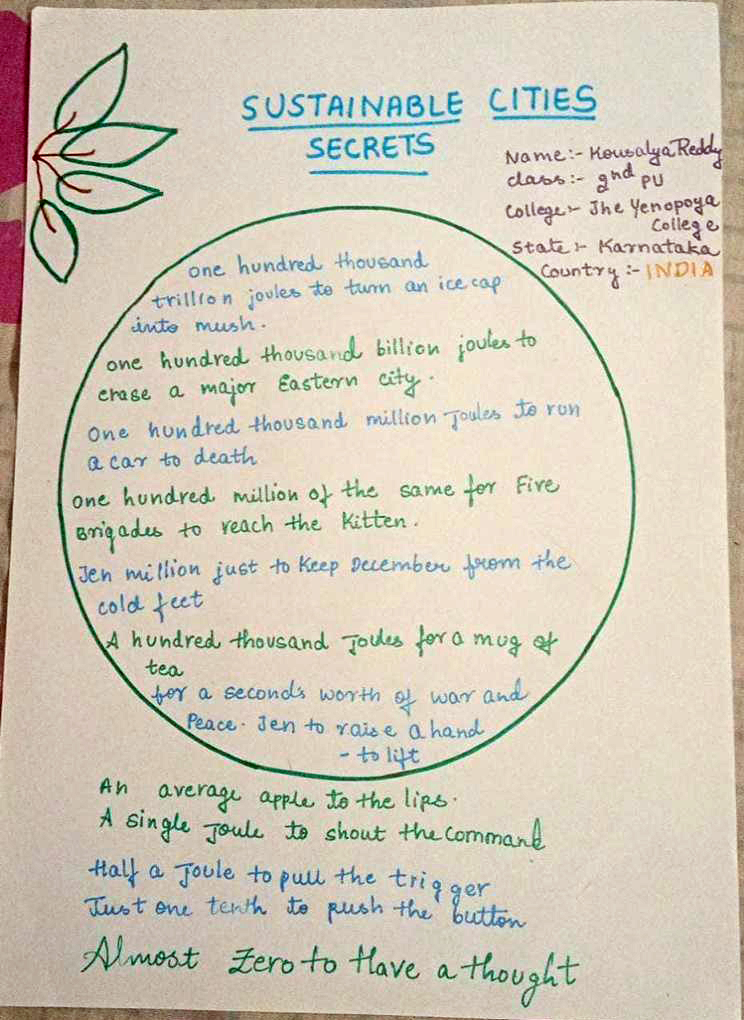 SUSTAINABLE CITIES
SECRETS
Name:- Kousalya Reddy
class:- 2nd PU
College:- The Yenopoya
College
State:- Karnataka
Country:- INDIA
one hundred thousand
trillion joules to turn an ice cap
into mush.
one hundred thousand billion joules to
erase a major Eastern city.
One hundred thousand million Joules to run
a car to death
one hundred million of the same for Five
Brigades to reach the Kitten.
Ten million just to Keep December from the
cold feet
A hundred thousand Joules for a mug of
tea
for a second's worth of war and
Peace. Ten to raise a hand
- to lift
An average apple to the lips.
A single Joule to shout the command
Half a Joule to pull the trigger
Just one tenth to push the button
Almost Zero to Have a thought